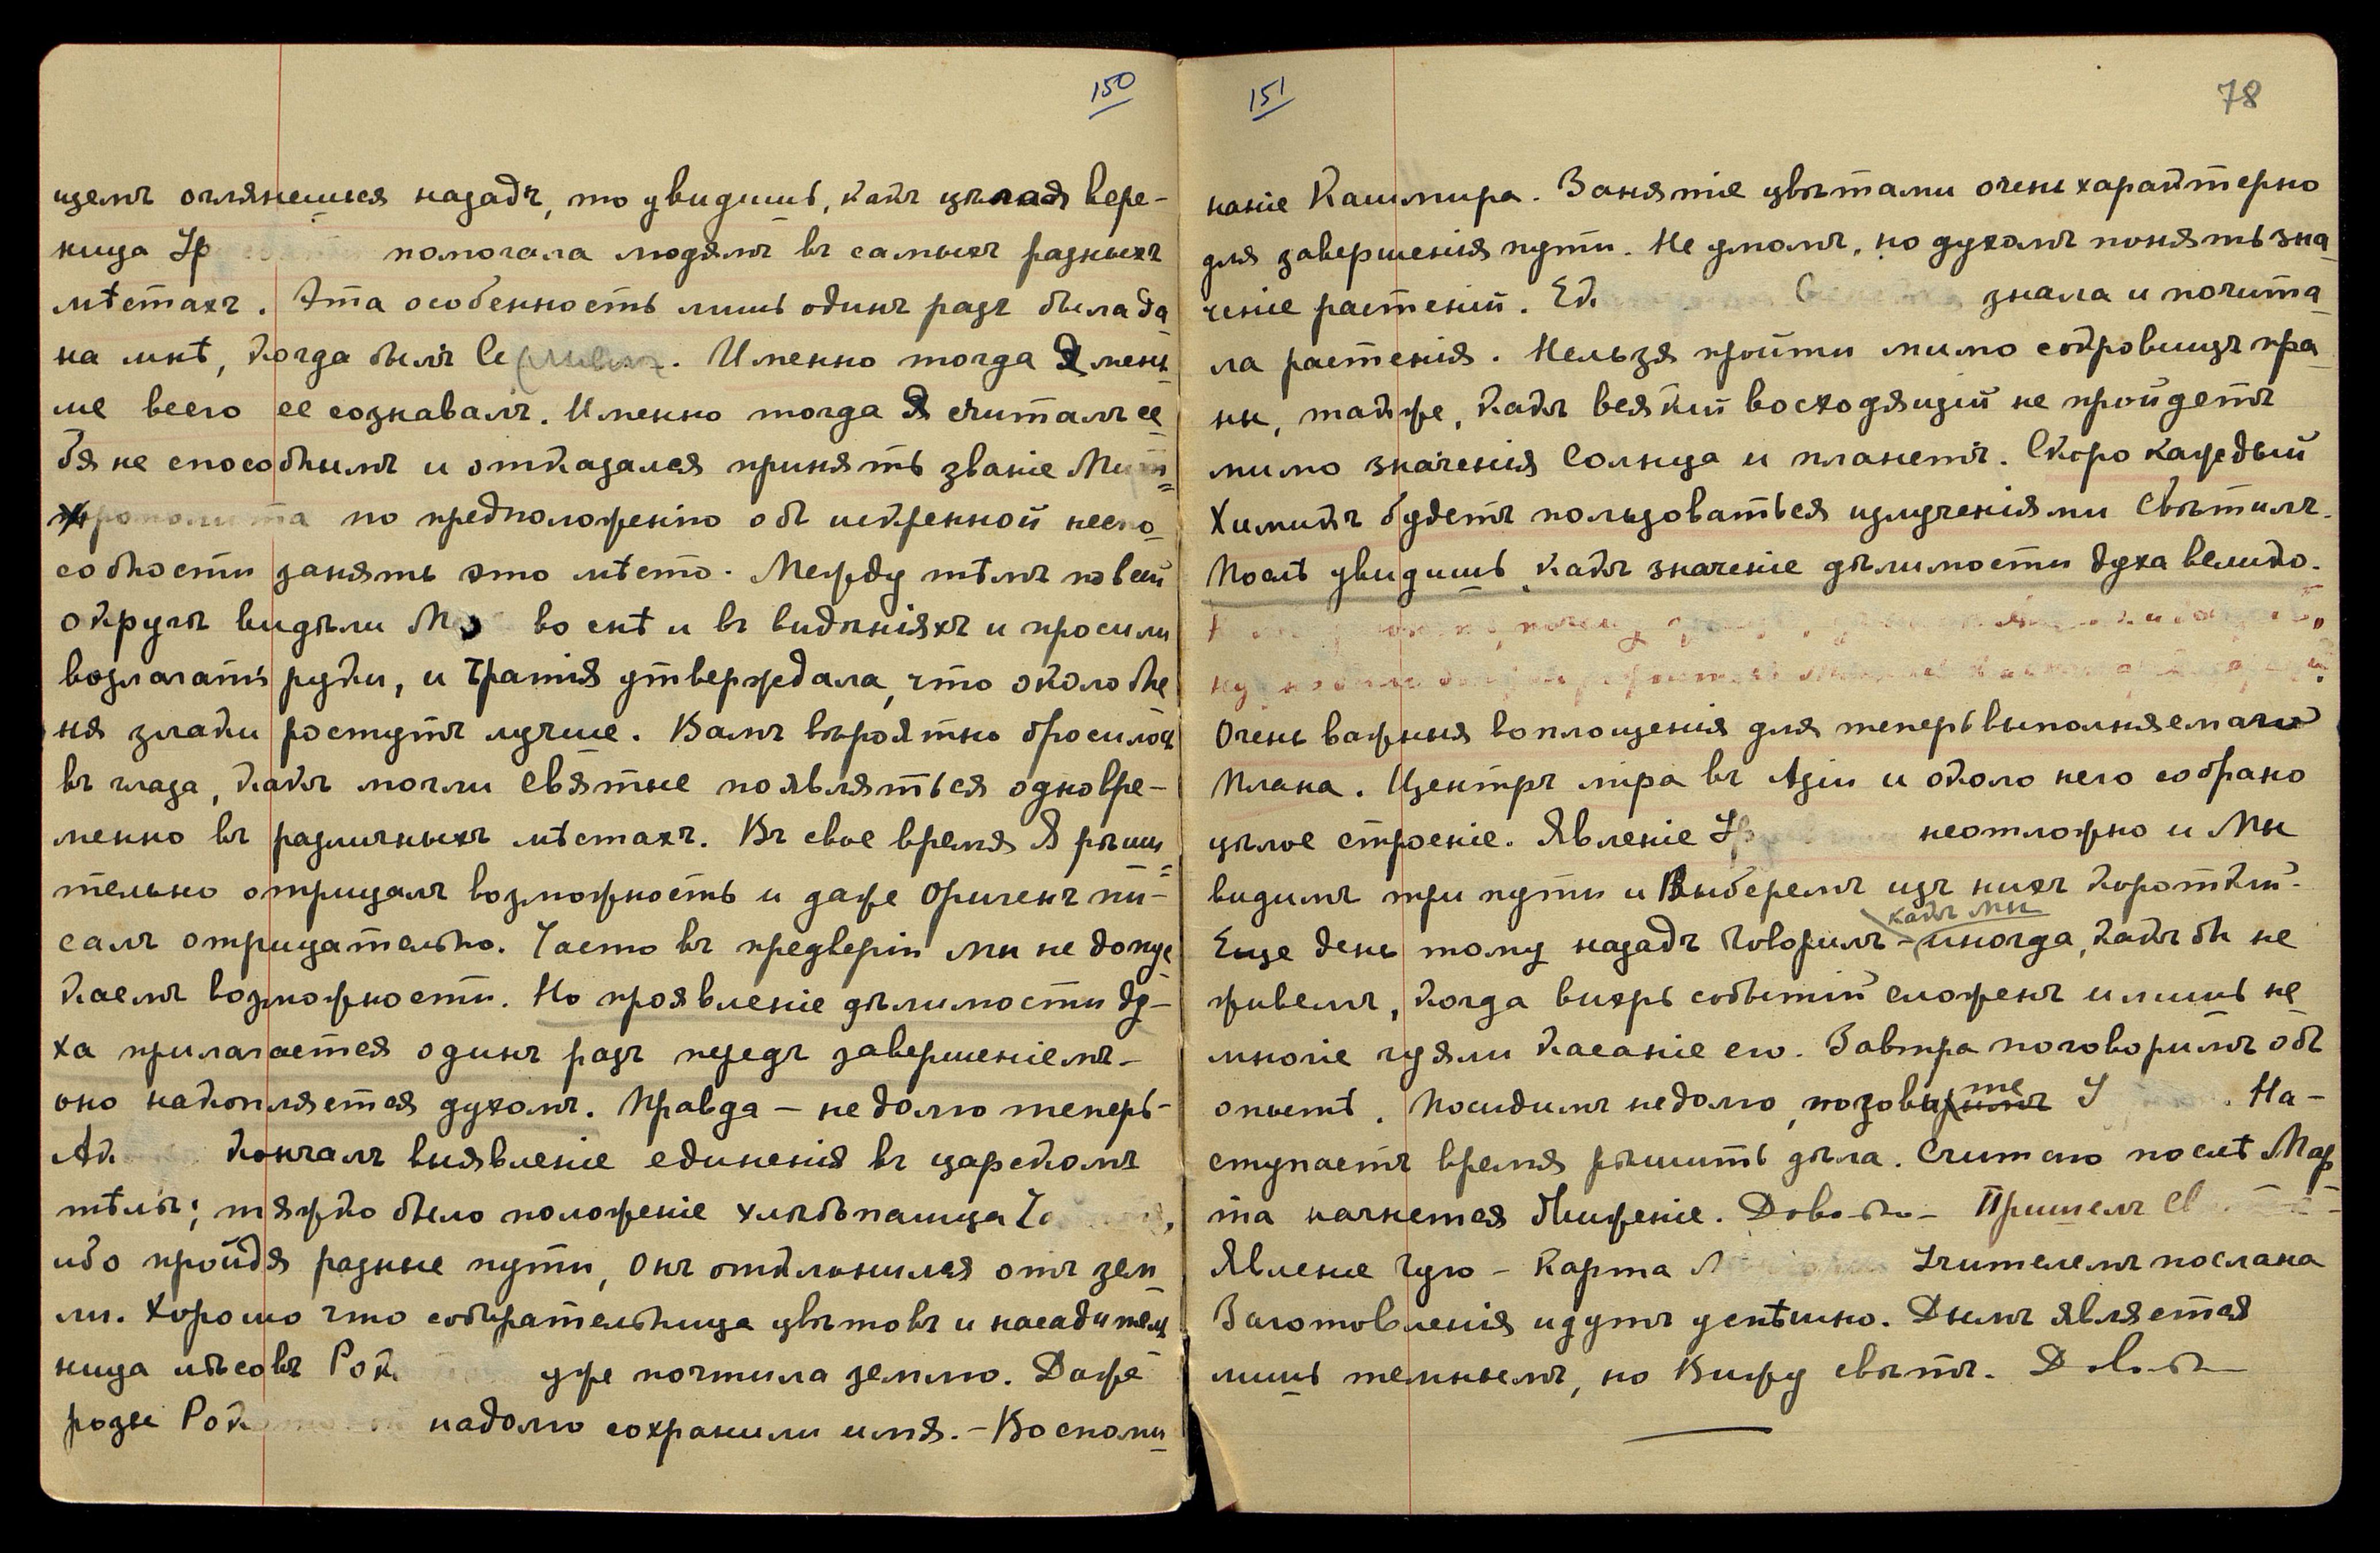 150
щемъ оглянешься назадъ, то увидишь, какъ цѣлая вере-
ница Ур помогала людямъ въ самыхъ разныхъ
мѣстахъ. Эта особенность лишь одинъ разъ была да
на мнѣ, когда былъ Сергіемъ. Именно тогда Я мень
ше всего ее сознавалъ. Именно тогда Я считалъ се
бя не способнымъ и отказался принять званіе Мит
рополита по предположенію объ искренной неспо
собности занять это мѣсто. Между тѣмъ по всей
округѣ видѣли М во снѣ и въ видѣніяхъ и просили
возлагать руки, и братія утверждала, что около ме
ня злаки ростутъ лучше. Вамъ вѣроятно бросилось
въ глаза, какъ могли Святые появляться одновре-
менно въ различныхъ мѣстахъ. Въ свое время Я рѣши
тельно отрицалъ возможность и даже Оригенъ пи-
салъ отрицательно. Часто въ предверіи мы не допус
каемъ возможности. Но проявленіе дѣлимости ду-
ха прилагается одинъ разъ передъ завершеніемъ-
оно накопляется духомъ. Правда - не долго теперь-
Ак кончалъ выявленіе единенія въ царскомъ
тѣлѣ; тяжко было положеніе хлѣбпашца
ибо пройдя разные пути, Онъ отклонился отъ зем
ли. Хорошо что собирательница цвѣтовъ и насадитель
ница лѣсовъ Рок уже почтила землю. Даже
розы Рок надолго сохранили имя. - Воспоми
151
78
наніе Кашмира. Занятіе цвѣтами очень характерно
для завершенія пути. Не умомъ, но духомъ понять зна
ченіе растеній. Ек знала и почита
ла растенія. Нельзя пройти мимо сокровищъ пра
ны, также, какъ всякій восходящій не пройдетъ
мимо значенія Солнца и планетъ. Скоро каждый
Химикъ будетъ пользоваться излученіями Свѣтилъ.
Послѣ увидишь какъ значеніе дѣлимости духа велико.
Очень важныя воплощенія для теперь выполняемаго
Плана. Центръ міра въ Азіи и около него собрано
цѣлое строеніе. Явленіе Ур неотложно и Мы
видимъ три пути и Выберемъ изъ нихъ короткій.
какъ мы
Еще день тому назадъ Говорилъ - иногда, какъ бы не
живемъ, когда вихрь событій сложенъ и лишь не
многіе чуяли касаніе его. Завтра поговоримъ объ
опытѣ. Посидимъ недолго, позовите У . На-
ступаетъ время рѣшить дѣла. Считаю послѣ Мар
та начнется движеніе. Довольно - Пришелъ Св
Явленіе Чую - Карта М Учителемъ послана
Заготовленія идутъ успѣшно. Дымъ является
лишь темнымъ, но Вижу свѣтъ. Довольно